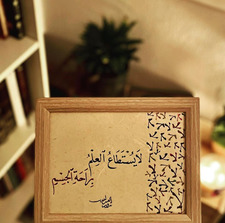 لَا يُسْتَطَاعُ العِلْمُ
بِرَاحَةِ الجِسْمِ